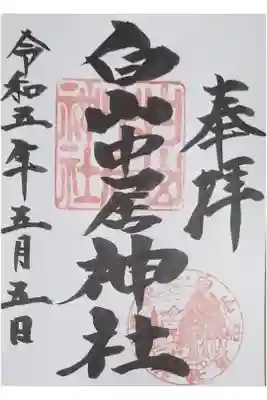 奉拝
白山中居神社
令和五年五月五日